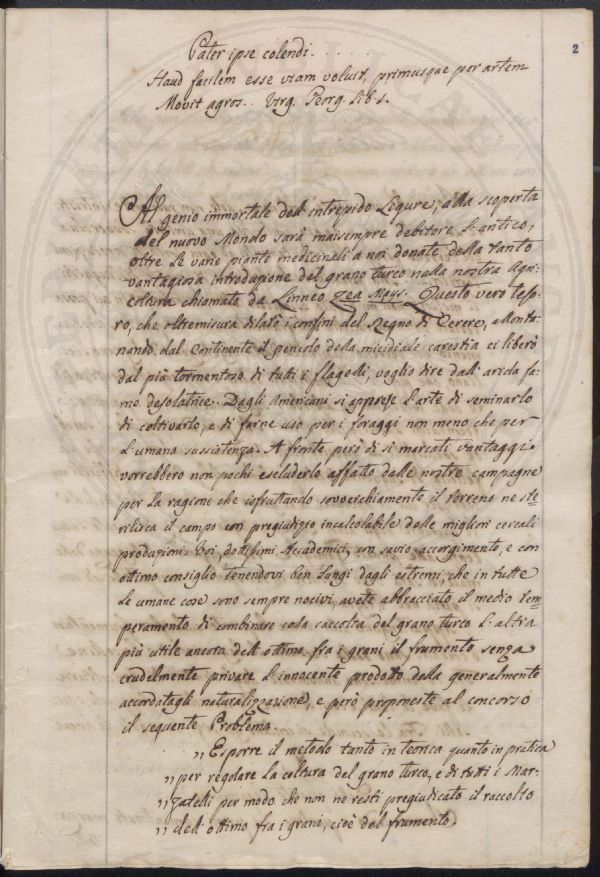 2
Pater ipse colendi . . . . .
Haud facilem esse viam voluit, primusque per artem
Movit agros . . Virg. Georg. Lib. 1.
Al genio immortale dell' intrepido Ligure, alla scoperta
del nuovo Mondo sarà maisempre debitore L'antico,
oltre Le varie piante medicinali a noi donate della tanto
vantagiosa introduzione del grano turco nella nostra Agri-
coltura chiamata da Linneo Zea Mays. Questo vero teso-
ro, che oltremisura dilatò i confini del Regno di Cerere, allonta-
nando dal Continente il pericolo della micidiale carestia ci liberò
dal più tormentoso di tutti i flagelli, voglio dire dall' arida fa-
me desolatrice. Dagli Americani si apprese L'arte di seminarlo
di coltivarlo, e di farne uso per i foraggi non meno che per
L'umana sussistenza. A fronte però di sì marcati vantaggi
vorrebbero non pochi escluderlo affatto dalle nostre campagne
per La ragione che isfruttando sovverchiamente il terreno ne ste-
rilisca il campo con pregiudizio incalcolabile delle migliori cereali
produzioni. Voi, dottissimi Accademici, con savio accorgimento, e con
ottimo consiglio tenendovi ben Lungi dagli estremi, che in tutte
Le umane cose sono sempre nocivi, avete abbracciato il medio tem-
peramento di combinare colla raccolta del grano turco L'altra
più utile ancora dell' ottimo fra i grani il frumento senza
crudelmente privare L'innocente prodotto della generalmente
accordatagli naturalizzazione, e però proponeste al concorso
il seguente Problema.
,, Esporre il metodo tanto in teorica quanto in pratica
,, per regolare La coltura del grano turco, e di tutti i Mar-
,, zatelli per modo che non ne resti pregiudicato il raccolto
,, dell' ottimo fra i grani, cioè del frumento.